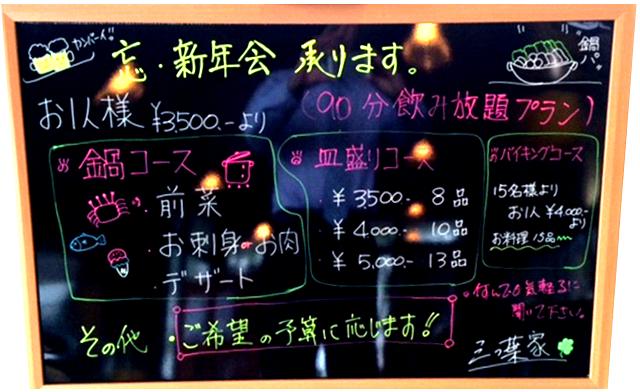 カンパーイ!!
忘・新年会 承ります。
鍋パ。
お1人様 ¥3,500.-より
(90分飲み放題プラン)
鍋コース
・前菜
・お刺身orお肉
・デザート
皿盛りコース
・¥3500- 8品
・¥4000.- 10品
・¥5,000.- 13品
バイキングコース
15名様より
お1人 ¥4,000.-より
お料理 15品
その他 ・ご希望の予算に応じます!!
なんでも気軽に
聞いて下さい。
三つ葉家